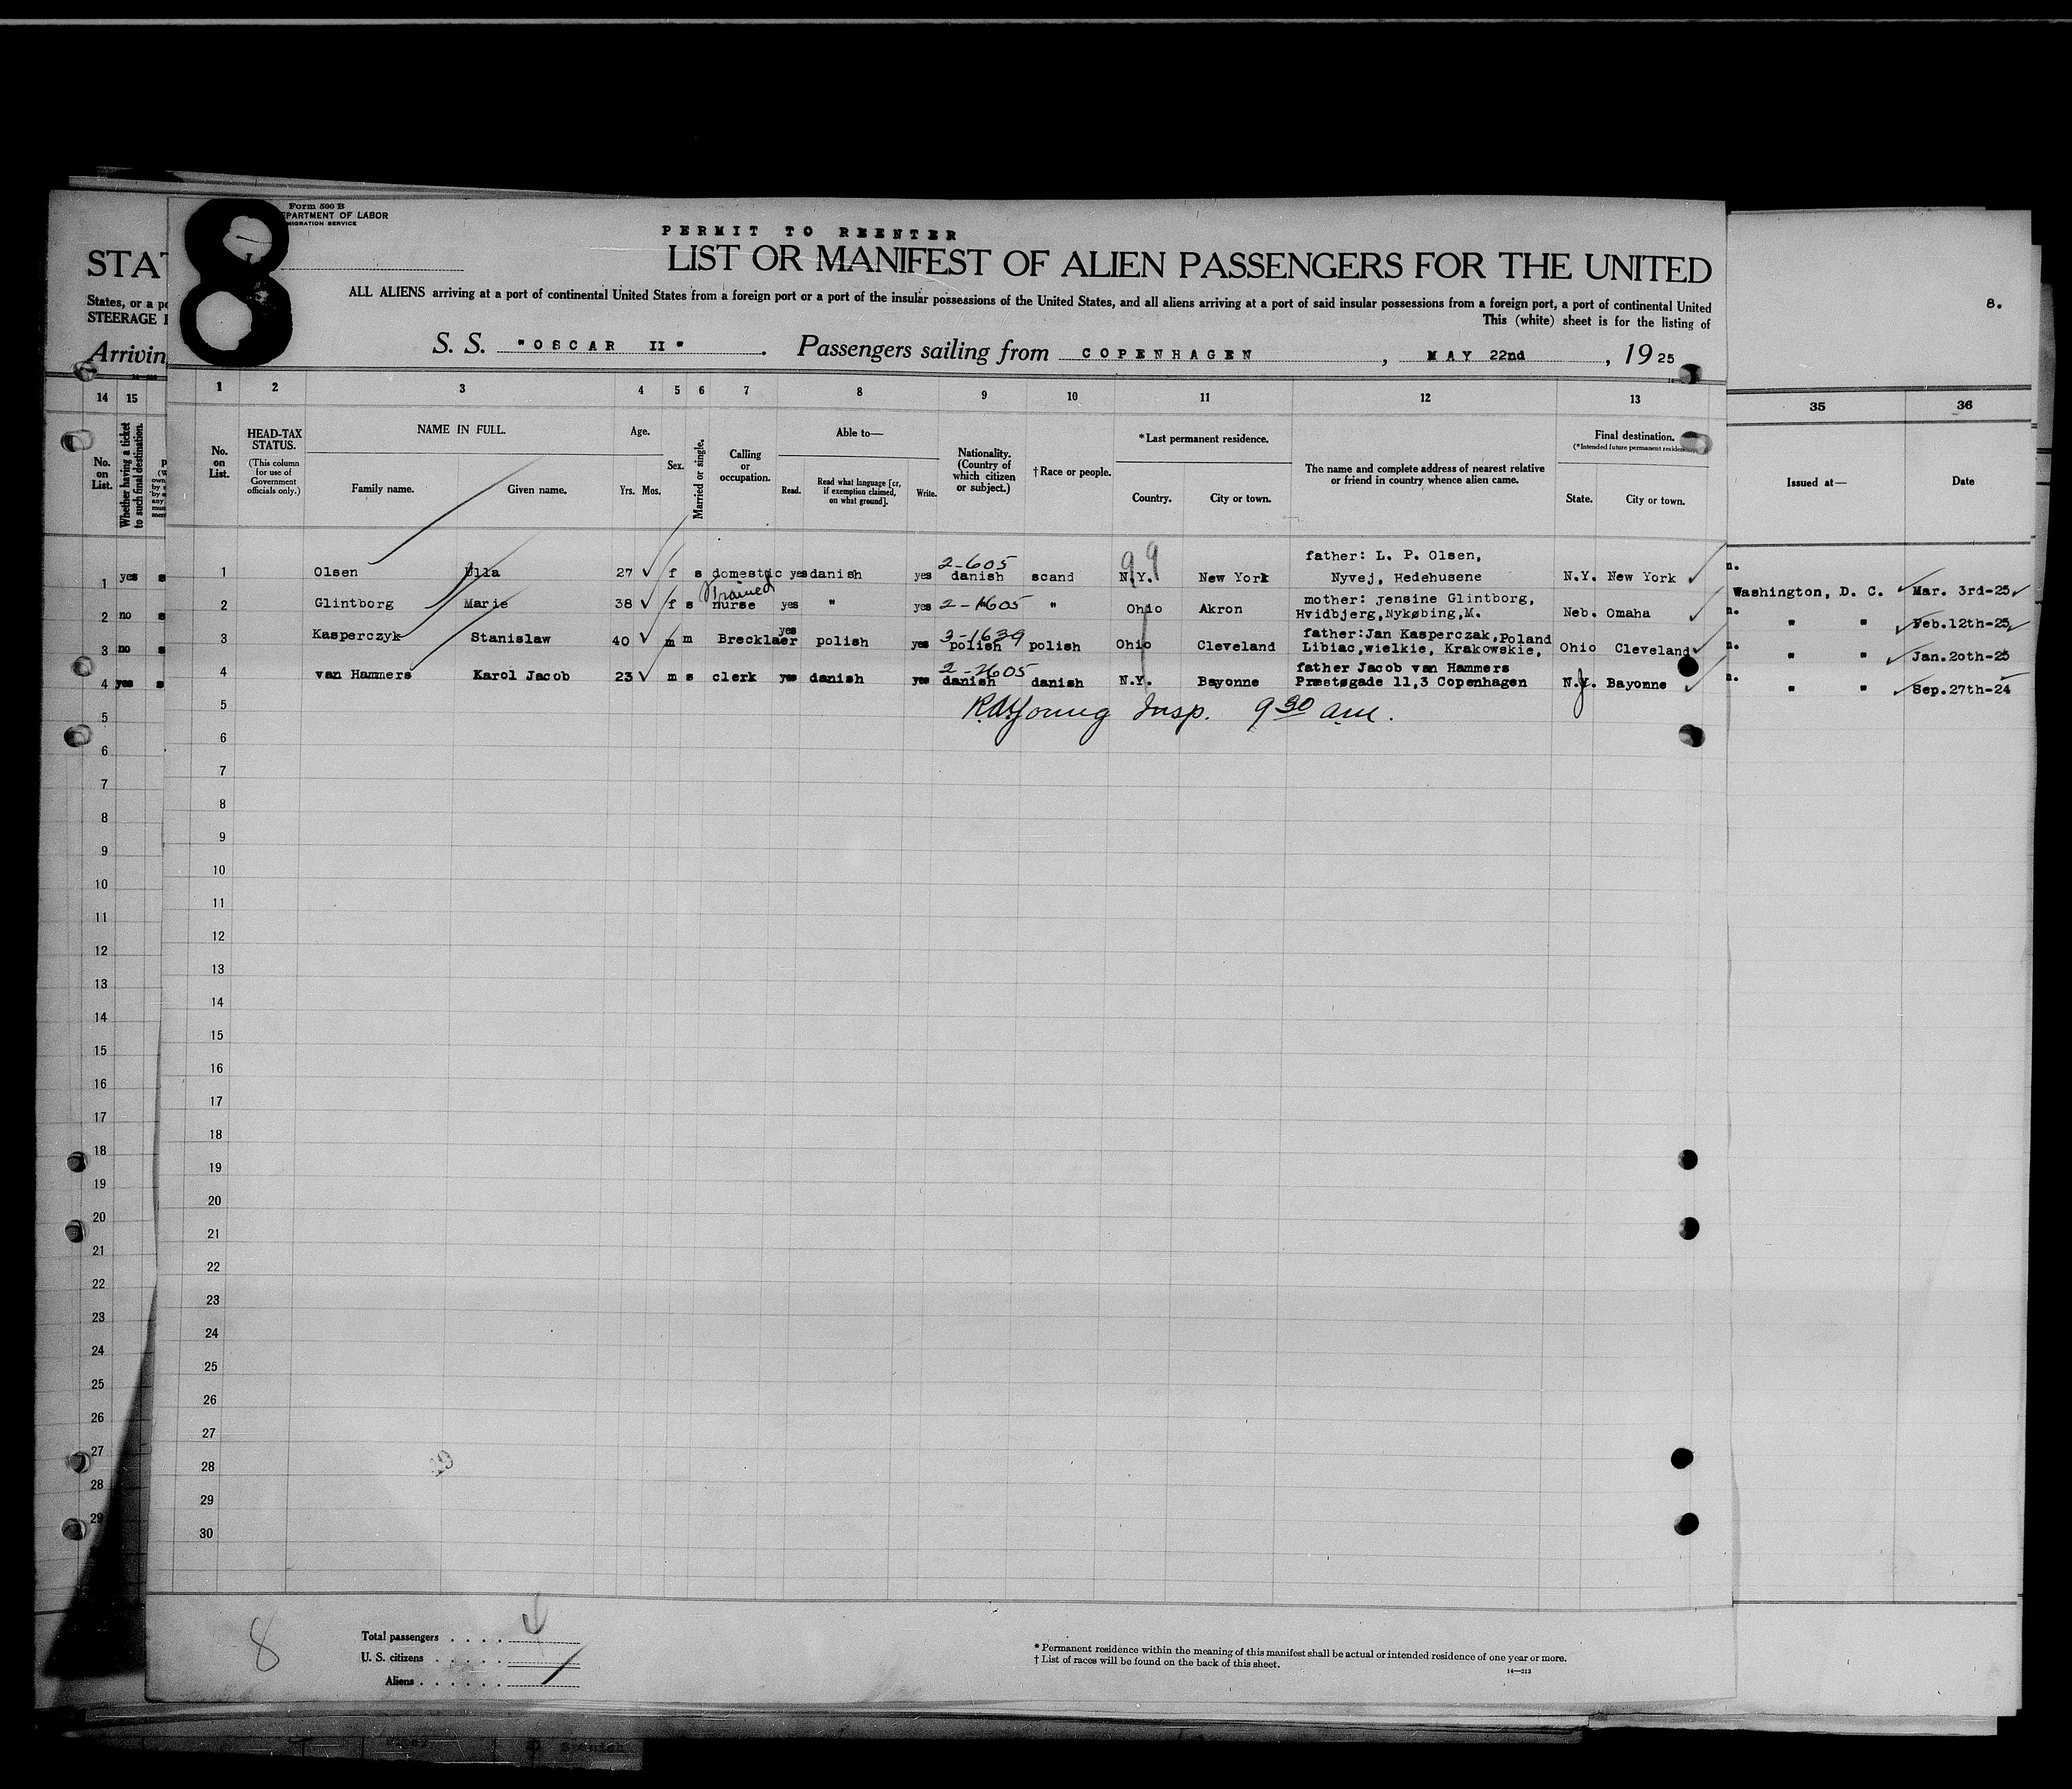 Form 500 B
DEPARTMENT OF LABOR
IMMIGRATION SERVICE
8
PERMIT TO REENTER
LIST OR MANIFEST OF ALIEN PASSENGERS FOR THE UNITED
STAT
ALL ALIENS arriving at a port of continental United States from a foreign port or a port of the insular possessions of the United States, and all aliens arriving at a port of said insular possessions from a foreign port, a port of continental United
States, or a po
This (white) sheet is for the listing of
STEERAGE
8.
S. S. "OSCAR II". Passengers sailing from COPENHAGEN, MAY 22nd, 1925
Arrivin
14 15 1 2 3 4 5 6 7 8 9 10 11 12 13 35 36
No. on List.
Whether having a ticket to such final destination.
No. on List.
HEAD-TAX STATUS.
(This column for use of Government officials only.)
NAME IN FULL.
Family name. Given name.
Age.
Yrs. Mos.
Sex.
Married or single.
Calling or occupation.
Able to—
Read. Read what language [or, if exemption claimed, on what ground]. Write.
Nationality. (Country of which citizen or subject.)
†Race or people.
*Last permanent residence.
Country. City or town.
The name and complete address of nearest relative or friend in country whence alien came.
Final destination.
(*Intended future permanent residence.)
State. City or town.
Issued at— Date
1 yes 1 Olsen Ulla 27 f s domestic yes danish yes 2-605 danish scand N.Y. New York father: L. P. Olsen, Nyvej, Hedehusene N.Y. New York Washington, D. C. Mar. 3rd-25
99
2 no 2 Glintborg Marie 38 f s Trained nurse yes " yes 2-1605 " Ohio Akron mother: Jensine Glintborg, Hvidbjerg,Nykøbing,M. Neb. Omaha " " Feb.12th-25
3 no 3 Kasperczyk Stanislaw 40 m m Brecklaer yes polish yes 3-1639 polish polish Ohio Cleveland father:Jan Kasperczak,Poland Libiac,wielkie, Krakowskie, Ohio Cleveland " " Jan.20th-25
4 yes 4 van Hammers Karol Jacob 23 m s clerk yes danish yes 2-2605 danish danish N.Y. Bayonne father Jacob van Hammers Præstøgade 11,3 Copenhagen N.J. Bayonne " " Sep.27th-24
5 5 Young Insp. 9 30 am.
6 6
7 7
8 8
9 9
10 10
11 11
12 12
13 13
14 14
15 15
16 16
17 17
18 18
19 19
20 20
21 21
22 22
23 23
24 24
25 25
26 26
27 27
28 28
29 29
30
8
Total passengers
U. S. citizens
Aliens
* Permanent residence within the meaning of this manifest shall be actual or intended residence of one year or more.
† List of races will be found on the back of this sheet.
14—213